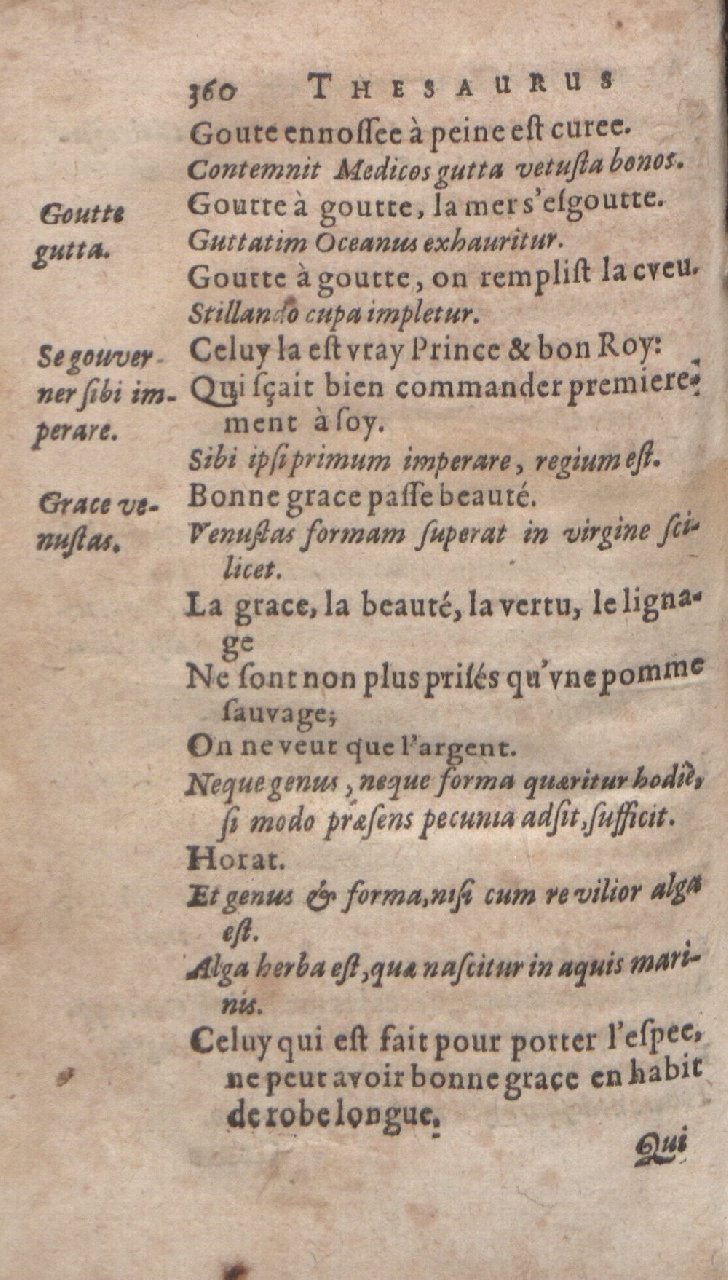 360 THESAURUS
Goute ennoſſee à peine eſt curee.
Contemnit Medicos gutta vetuſta bonos.
Goutte
gutta.
Goutte à goutte, la mer s'eſgoutte.
Guttatim Oceanus exhauritur.
Goutte à goutte, on rempliſt la cveu.
Stillando cupa impletur.
Se gouver-
ner ſibi im-
perare.
Celuy la eſt vray Prince & bon Roy:
Qui ſçait bien commander premiere-
ment à ſoy.
Sibi ipſi primum imperare, regium eſt.
Grace ve-
nuſtas.
Bonne grace paſſe beauté.
Venuſtas formam ſuperat in virgine ſci-
licet.
La grace, la beauté, la vertu, le ligna-
ge
Ne ſont non plus priſés qu'vne pomme
ſauvage;
On ne veut que l'argent.
Neque genus, neque forma quæritur hodie,
ſi modo præſens pecunia adſit, ſufficit.
Horat.
Et genus & forma, niſi cum re vilior alga
eſt.
Alga herba eſt, quæ naſcitur in aquis mari-
nis.
Celuy qui eſt fait pour porter l'eſpee,
ne peut avoir bonne grace en habit
de robe longue.
Qui